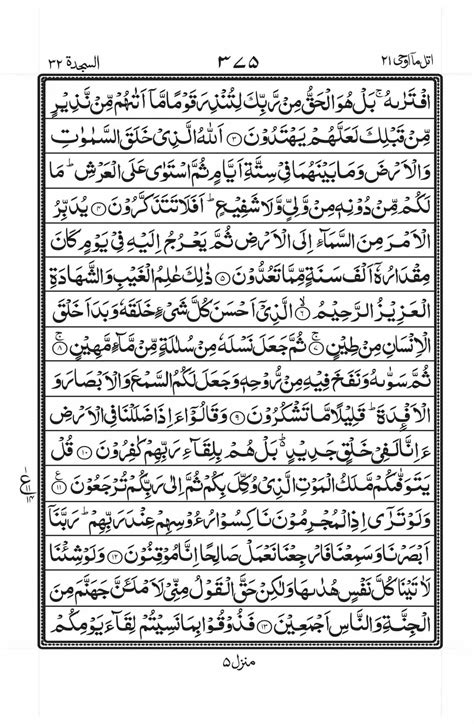 اتل مآ اوحی ۲۱ ۳۷۵ السجدة ۳۲
افْتَرٰىهُ ۚ بَلْ هُوَ الْحَقُّ مِنْ رَّبِّكَ لِتُنْذِرَ قَوْمًا مَّاۤ اَتٰىهُمْ مِّنْ نَّذِیْرٍ
مِّنْ قَبْلِكَ لَعَلَّهُمْ یَهْتَدُوْنَ ﴿۳﴾ اَللّٰهُ الَّذِیْ خَلَقَ السَّمٰوٰتِ
وَالْاَرْضَ وَمَا بَیْنَهُمَا فِیْ سِتَّةِ اَیَّامٍ ثُمَّ اسْتَوٰی عَلَی الْعَرْشِ ؕ مَا
لَكُمْ مِّنْ دُوْنِهٖ مِنْ وَّلِیٍّ وَّلَا شَفِیْعٍ ؕ اَفَلَا تَتَذَكَّرُوْنَ ﴿۴﴾ یُدَبِّرُ
الْاَمْرَ مِنَ السَّمَآءِ اِلَی الْاَرْضِ ثُمَّ یَعْرُجُ اِلَیْهِ فِیْ یَوْمٍ كَانَ
مِقْدَارُهٗۤ اَلْفَ سَنَةٍ مِّمَّا تَعُدُّوْنَ ﴿۵﴾ ذٰلِكَ عٰلِمُ الْغَیْبِ وَالشَّهَادَةِ
الْعَزِیْزُ الرَّحِیْمُ ﴿۶﴾ الَّذِیْۤ اَحْسَنَ كُلَّ شَیْءٍ خَلَقَهٗ وَبَدَاَ خَلْقَ
الْاِنْسَانِ مِنْ طِیْنٍ ﴿۷﴾ ثُمَّ جَعَلَ نَسْلَهٗ مِنْ سُلٰلَةٍ مِّنْ مَّآءٍ مَّهِیْنٍ ﴿۸﴾
ثُمَّ سَوّٰىهُ وَنَفَخَ فِیْهِ مِنْ رُّوْحِهٖ وَجَعَلَ لَكُمُ السَّمْعَ وَالْاَبْصَارَ وَ
الْاَفْـِٕدَةَ ؕ قَلِیْلًا مَّا تَشْكُرُوْنَ ﴿۹﴾ وَقَالُوْۤا ءَاِذَا ضَلَلْنَا فِی الْاَرْضِ
ءَاِنَّا لَفِیْ خَلْقٍ جَدِیْدٍ ؕ۬ بَلْ هُمْ بِلِقَآئِ رَبِّهِمْ كٰفِرُوْنَ ﴿۱۰﴾ قُلْ
یَتَوَفّٰىكُمْ مَّلَكُ الْمَوْتِ الَّذِیْ وُكِّلَ بِكُمْ ثُمَّ اِلٰی رَبِّكُمْ تُرْجَعُوْنَ ﴿۱۱﴾
ع ۱۱ ۱۴
وَلَوْ تَرٰۤی اِذِ الْمُجْرِمُوْنَ نَاكِسُوْا رُءُوْسِهِمْ عِنْدَ رَبِّهِمْ ؕ رَبَّنَاۤ
اَبْصَرْنَا وَسَمِعْنَا فَارْجِعْنَا نَعْمَلْ صَالِحًا اِنَّا مُوْقِنُوْنَ ﴿۱۲﴾ وَلَوْ شِئْنَا
لَاٰتَیْنَا كُلَّ نَفْسٍ هُدٰىهَا وَلٰكِنْ حَقَّ الْقَوْلُ مِنِّیْ لَاَمْلَـَٔنَّ جَهَنَّمَ مِنَ
الْجِنَّةِ وَالنَّاسِ اَجْمَعِیْنَ ﴿۱۳﴾ فَذُوْقُوْا بِمَا نَسِیْتُمْ لِقَآءَ یَوْمِكُمْ
منزل ۵